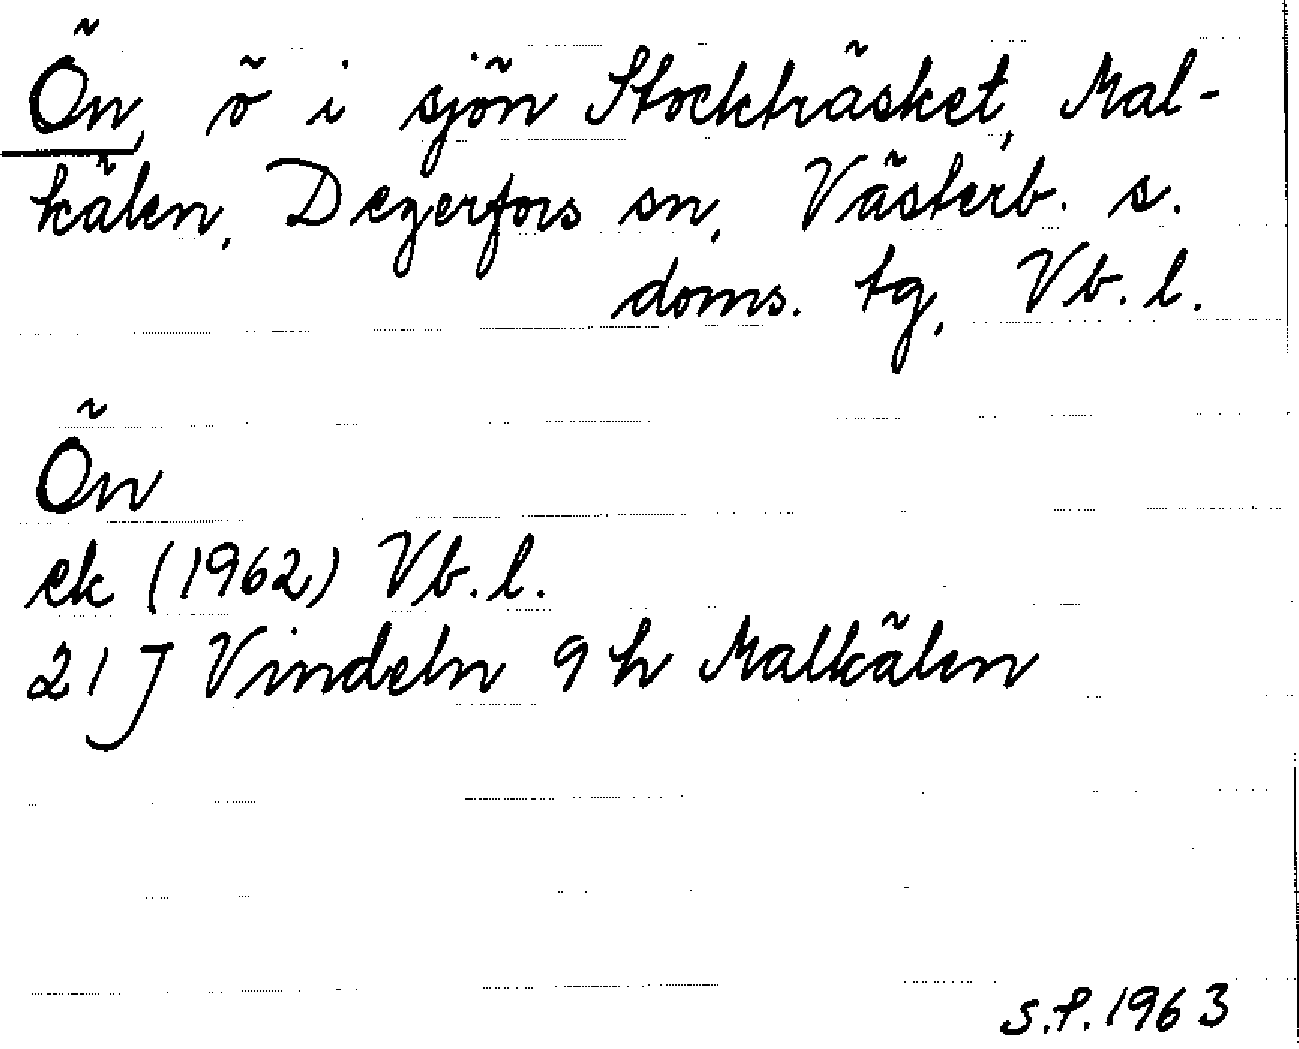 Ön, ö i sjön Stockträsket, Mal-
kälen, Degerfors sn, Västerb. s.
doms. tg, Vb. l.
Ön
ek (1962) Vb. l.
21 J Vindeln 9 h Malkälen
S.P. 1963